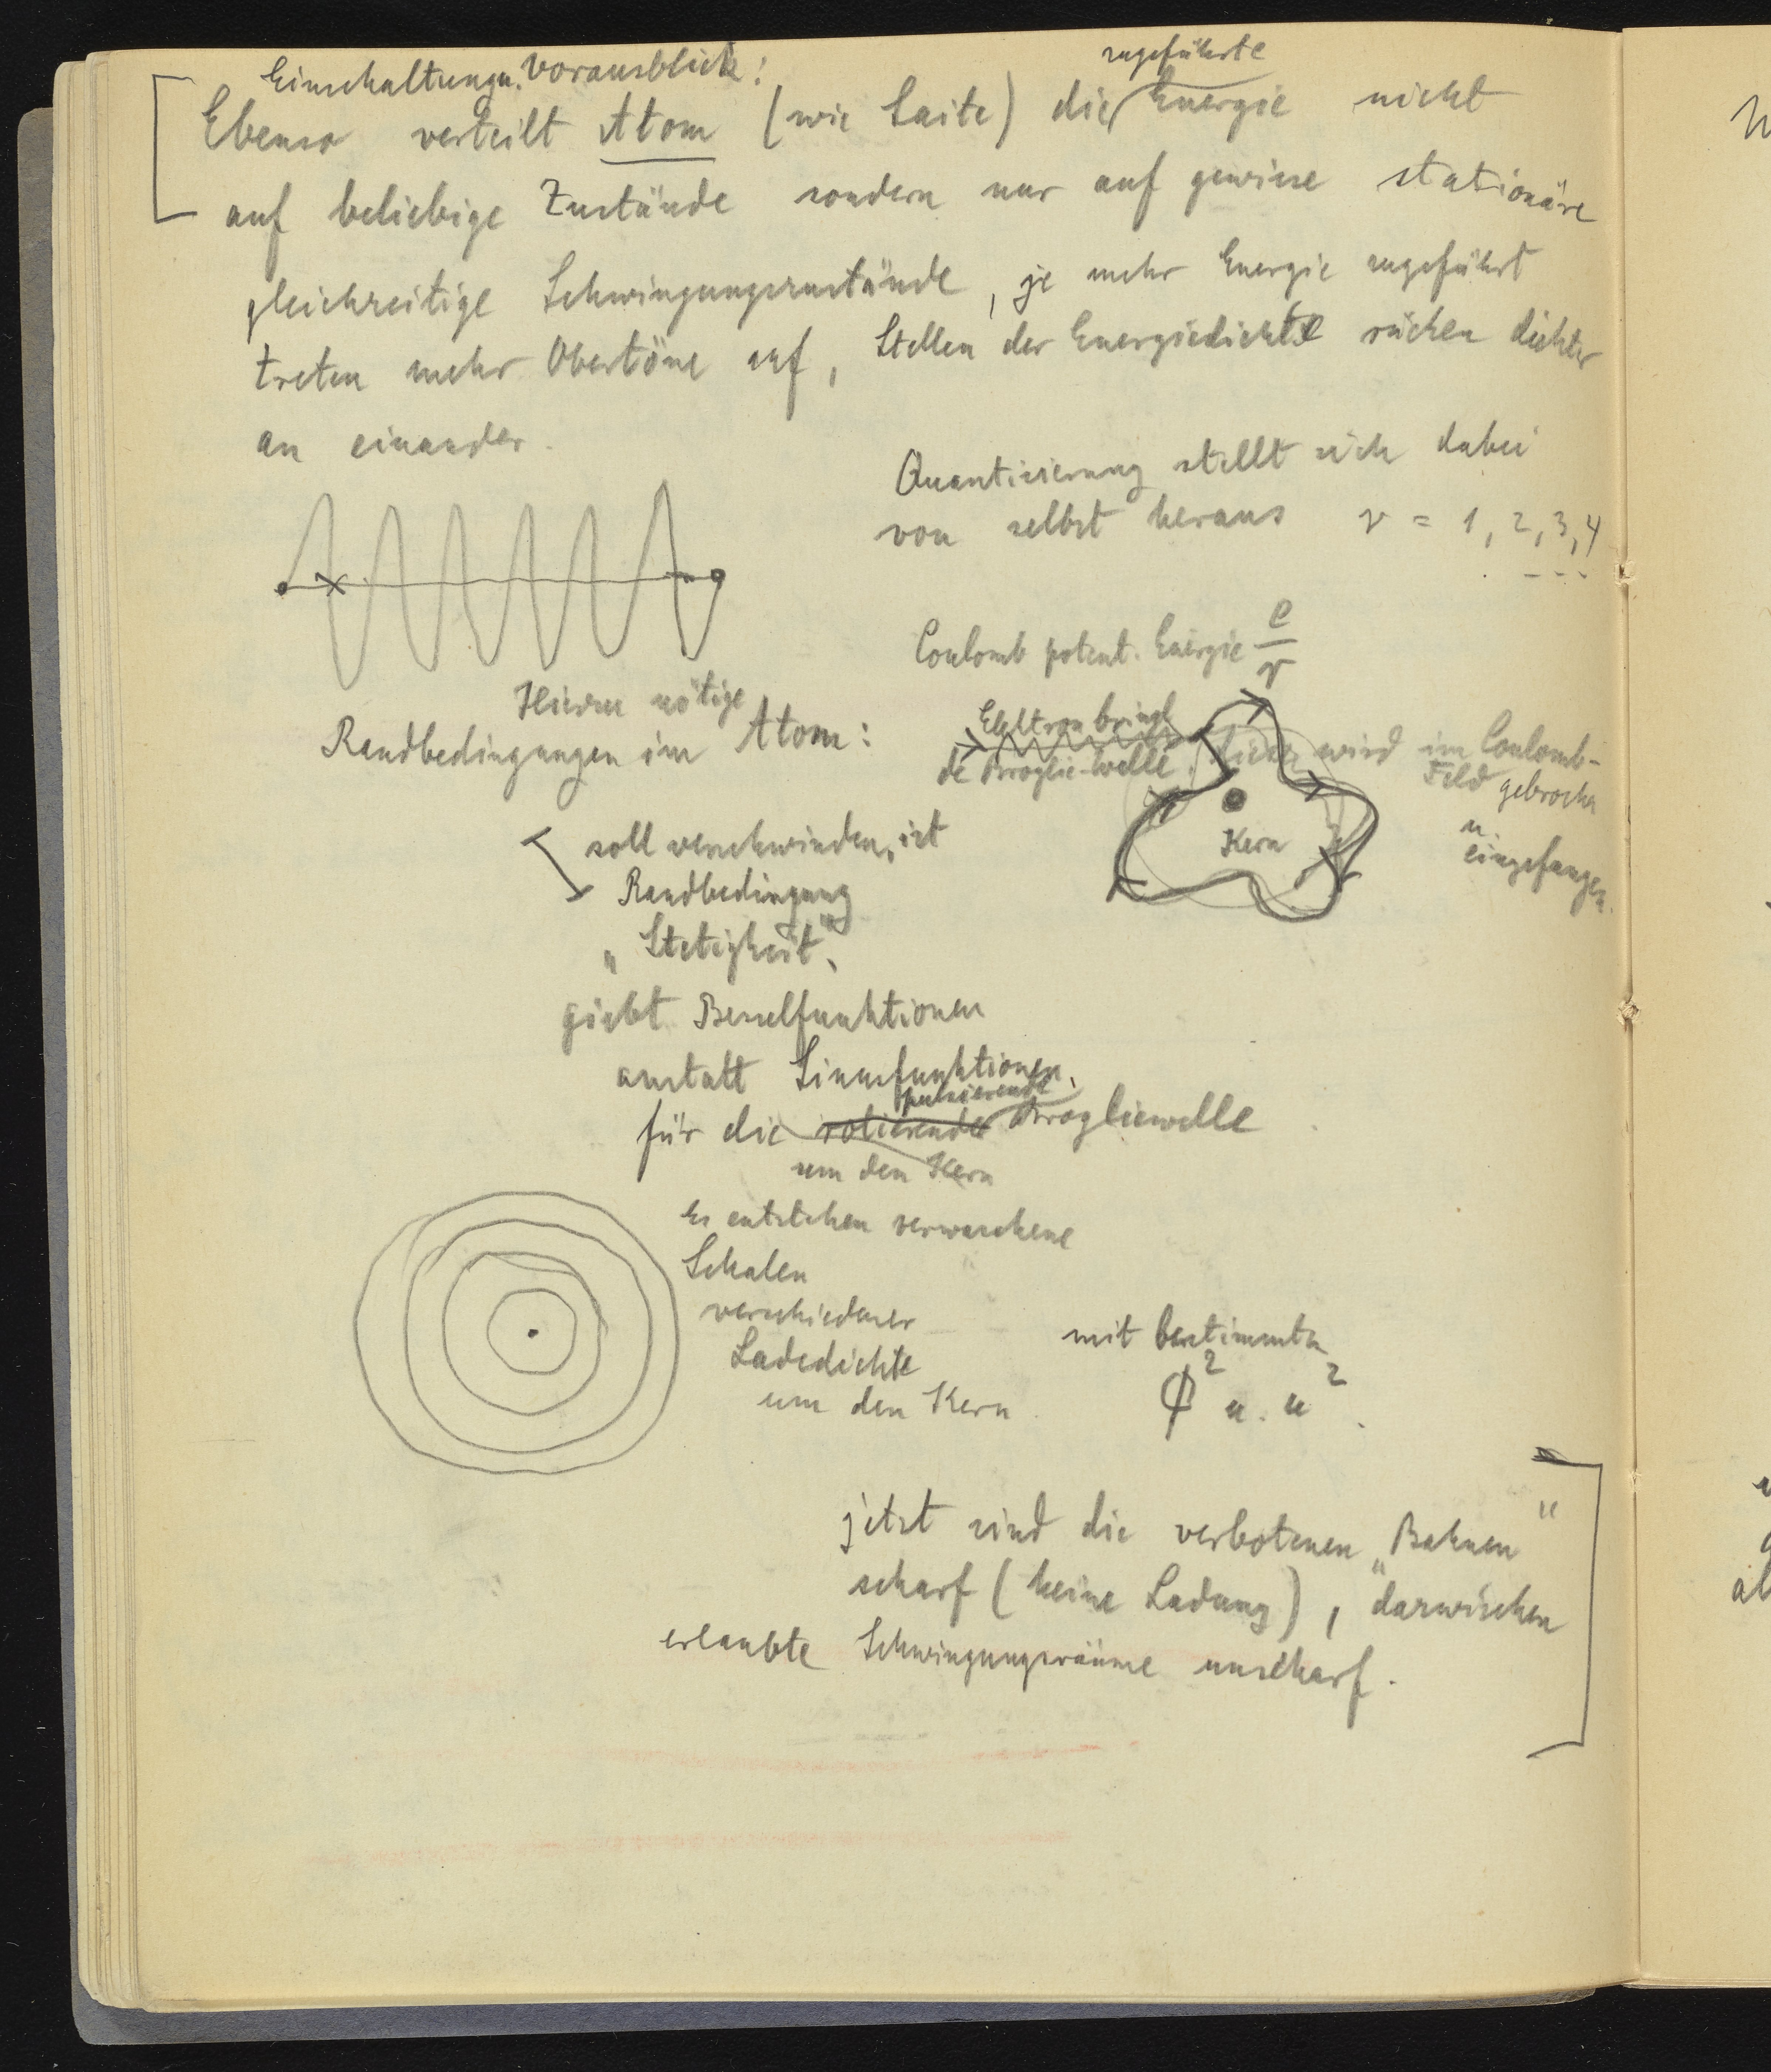 Einschaltung u. Vorausblick:
zugeführte
Ebenso verteilt Atom (wie Saite) die Energie nicht
auf beliebige Zustände sondern nur auf gewisse stationäre
gleichzeitige Schwingungszustände, je mehr Energie zugeführt
treten mehr Obertöne auf, Stellen der Energiedichte rücken dichter
an einander.
Quantisierung stellt sich dabei
von selbst heraus ν = 1, 2, 3, 4
- - -
Coulomb potent. Energie e/r
Hierzu nötige
Randbedingungen im Atom:
Elektron bringt
de Broglie-Welle, diese wird im Coulomb-
Feld gebrochen
u.
eingefangen.
Kern
soll verschwinden, ist
Randbedingung
„Stetigkeit",
giebt Besselfunktionen
anstatt Sinusfunktionen,
pulsierende
für die rotierende Brogliewelle
um den Kern
Es entstehen verwaschene
Schalen
verschiedener
Ladedichte
um den Kern
mit bestimmten
ϕ² u. u².
jetzt sind die verbotenen „Bahnen"
scharf (keine Ladung), dazwischen
erlaubte Schwingungsräume unscharf.